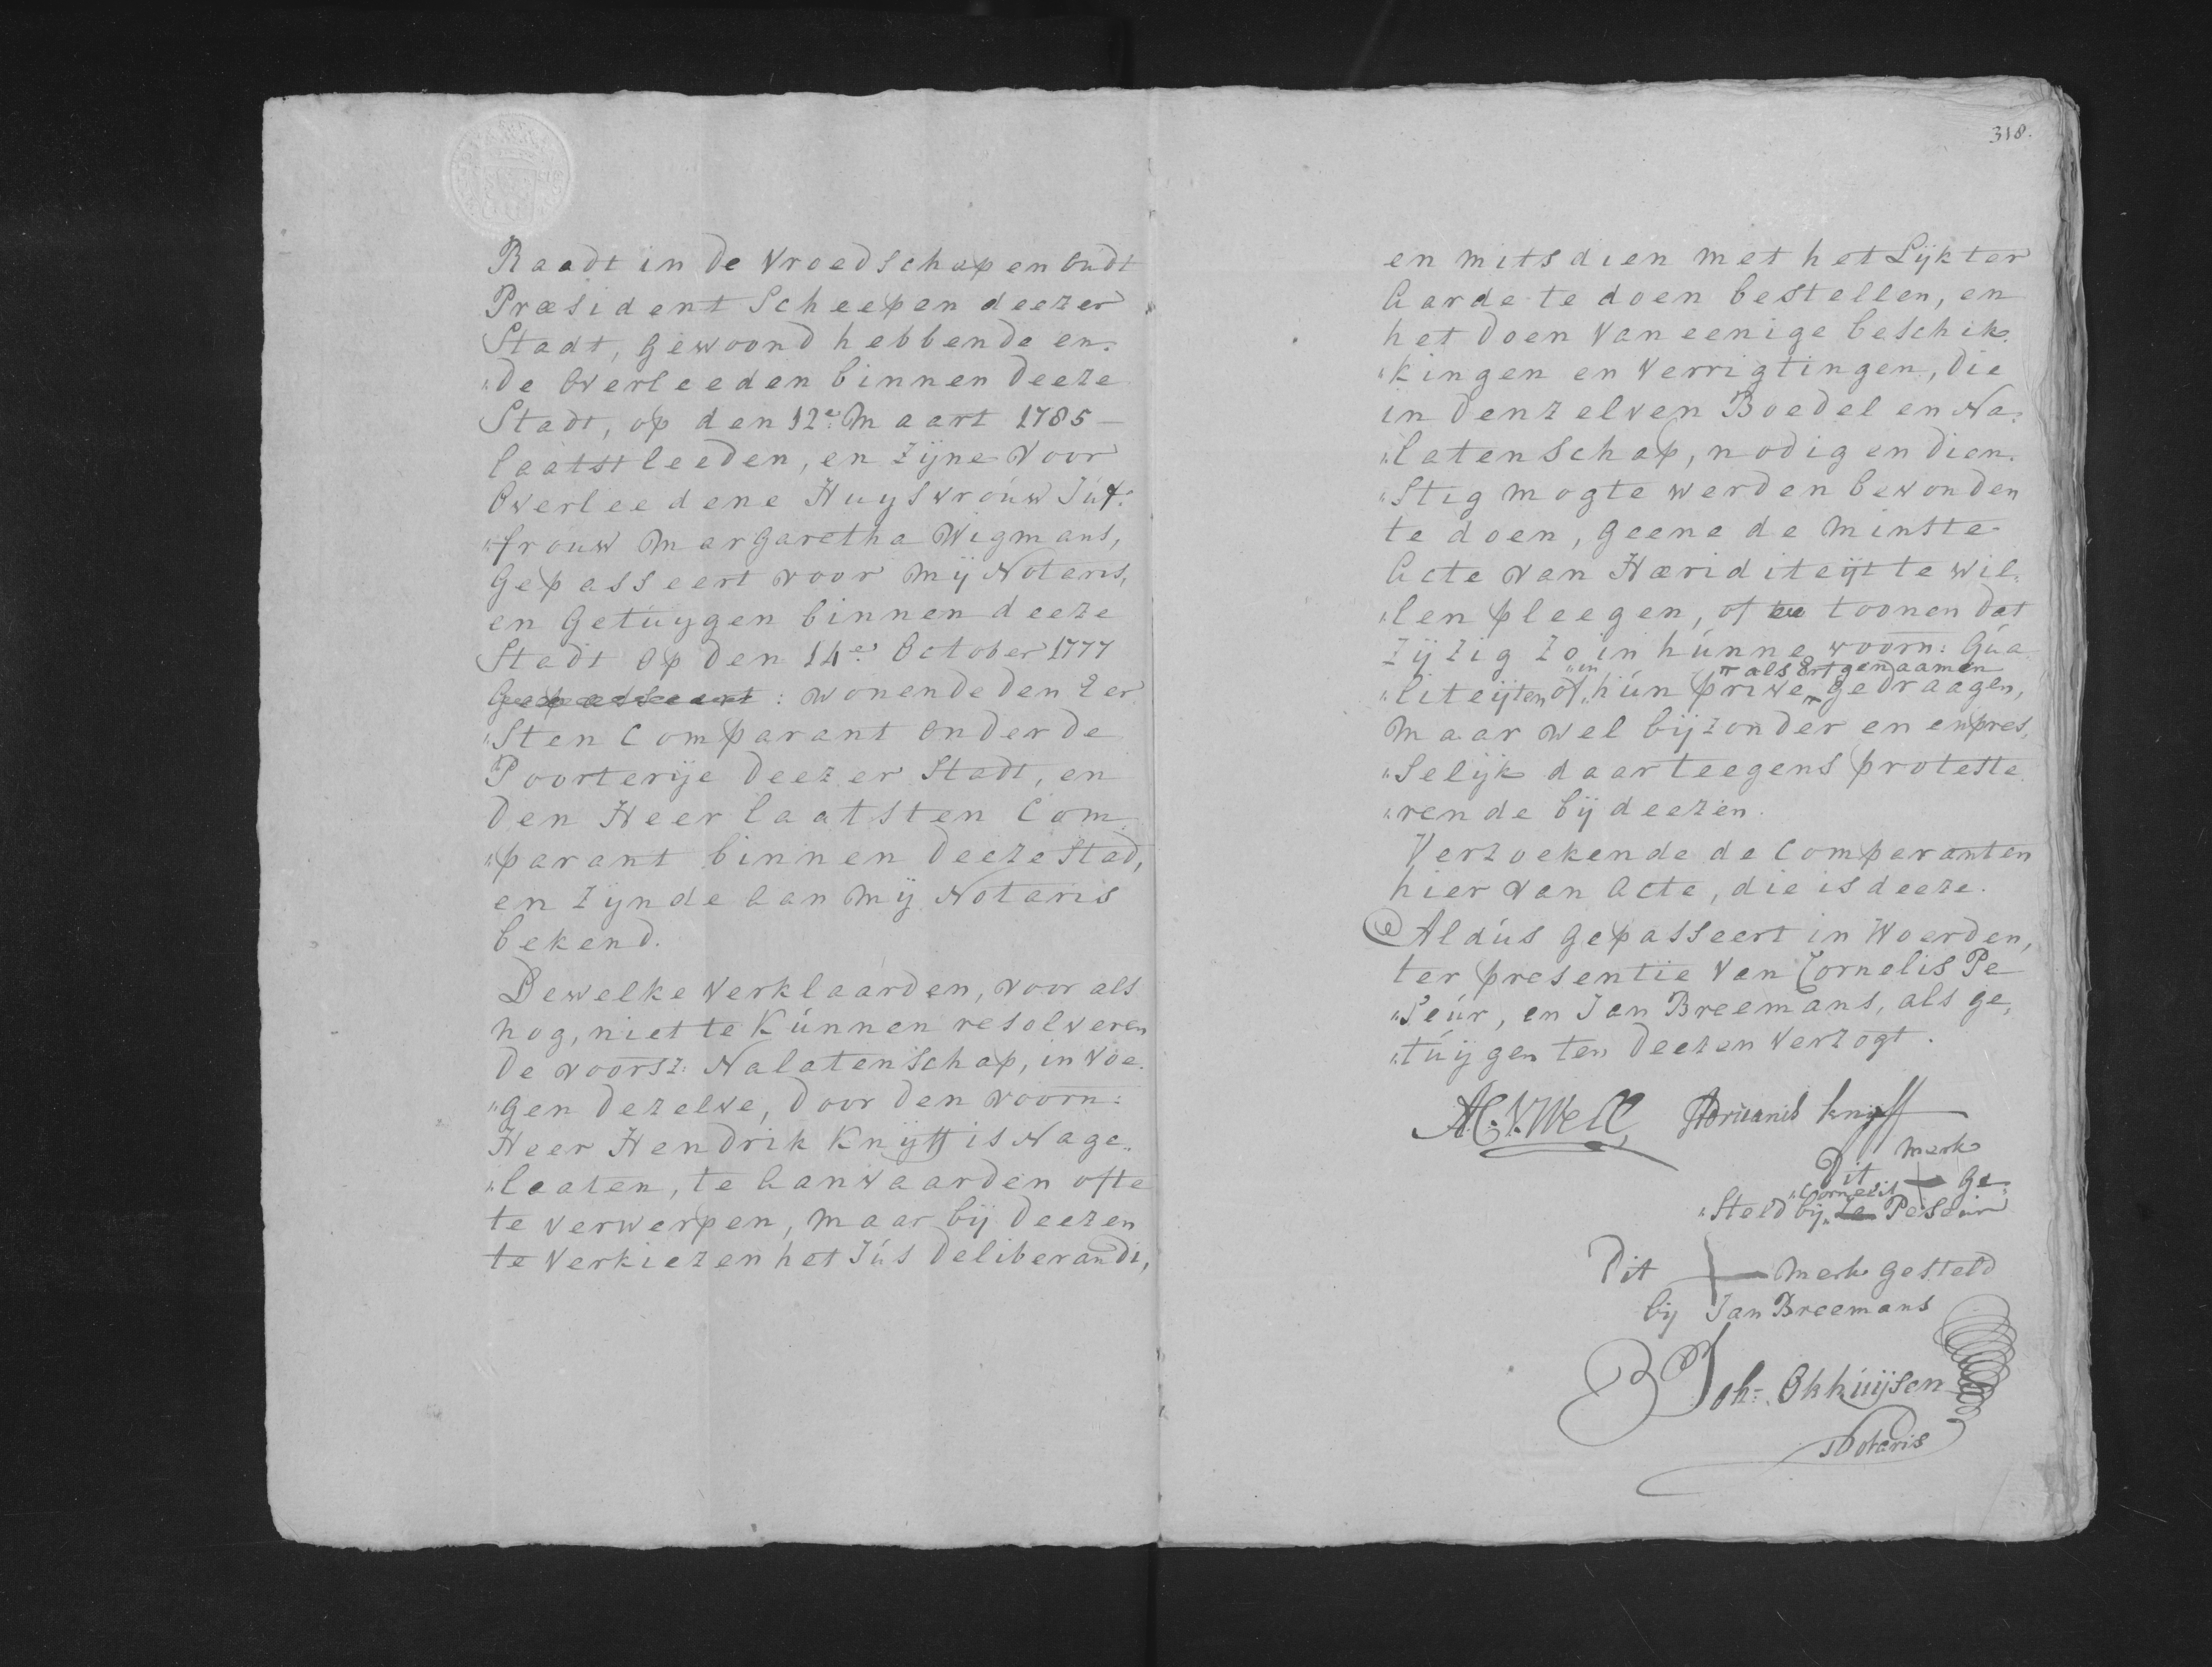 Raadt in de Vroedschap en Oudt
Præsident Scheepen deezer
Stadt, Gewoond hebbende en
„de Overleeden binnen deeze
Stadt, op den 12e. Maart 1785 –
laatstleeden, en zijne voor
Overleedene Huysvrouw Juf:
„frouw Margaretha Wigmans,
Gepasseert voor mij Notaris,
en Getuygen binnen deeze
Stadt op den 14e. October 1777
Gepasseert: wonende den Eer
„sten Comparant onder de
Poorterije deezer Stadt, en
den Heer laatsten Com
„parant binnen deeze Stad,
en zijnde aan mij Notaris
bekend.
Dewelke verklaarden, voor als
nog, niet te kunnen resolveren
de voorsz: Nalatenschap, in voe
„gen dezelve, door den voorn:
Heer Hendrik Knijff is Nage„
„laaten, te aanvaarden ofte
te verwerpen, maar bij deezen
te verkiezen het Jus deliberandi,
318.
en mits dien met het Lijk ter
Aarde te doen bestellen, en
het doen van eenige beschik
„kingen en verrigtingen, die
in denzelven Boedel en Na
„latenschap, nodig en dien
„stig mogte werden bevonden
te doen, geene de minste
Acte van Hæriditeijt te wil
„len pleegen, of te toonen dat
zij zig zo in hunne voorn: Qua
„in als Erfgenaamen
„liteijten of hun prive gedraagen,
maar wel bijzonder en expres
„selijk daarteegens proteste
„rende bij deezen.
Verzoekende de Comparanten
hier van Acte, die is deeze.
Aldus gepasseert in Woerden,
ter presentie van Cornelis Pe
„seur, en Jan Breemans, als ge,
„tuijgen ten deezen verzogt.
A:C:V:Well Adrianis knijff
Dit merk
Cornelis + Ge
„steld bij de Peseur
Dit + merk gesteld
bij Jan Breemans
Joh: Okhuijsen
Notaris